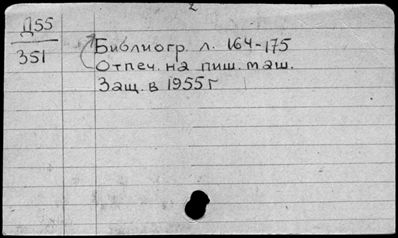 2
Д55
351
Библиогр. л. 164-175
Отпеч. на пиш. маш.
Защ. в 1955 г